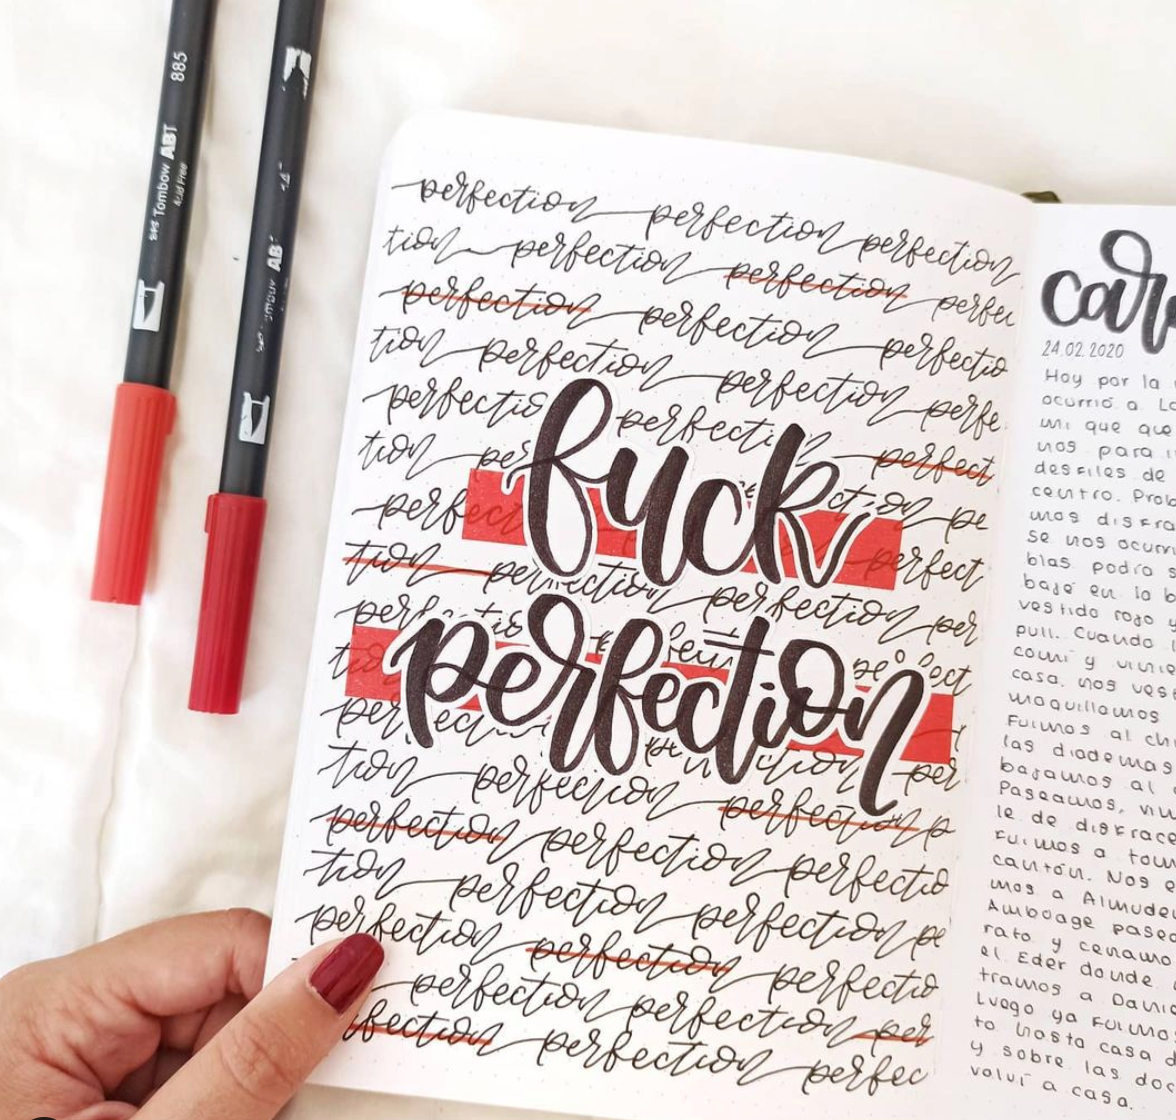 885
Tombow ABT
Acid Free
perfection perfection perfection
tion perfection perfection perfec
perfection perfection perfectio
tion perfection perfection perfe
perfectio perfecti perfect
tion per ction pe
perfect perfect
fuck
tion perfection perfection per
perf
perfection
per
tion perfection perfection p
perfection perfection perfectio
tion perfection perfection pe
perfection perfection perfectio
perfection perfection per
fection perfection perfec
car
24.02.2020
Hoy por la
ocurrió a
mi que que
nos para
desfiles de
centro.
mos disfra
se nos ocurr
blas. podro s
bajé en la b
vestido rojo y
pull. Cuando
comí y
casa. nos ves
maquillamos
Fuimos al
las diademas
bajamos al
Paseamos,
le de disfrace
Fuimos a tom
cantón. Nos
mos a Almude
Amboage pase
rato y cenamo
el Eder donde
tramos a Dani
Luego ya fuimo
to hasta casa d
y sobre las doc
volví a casa.